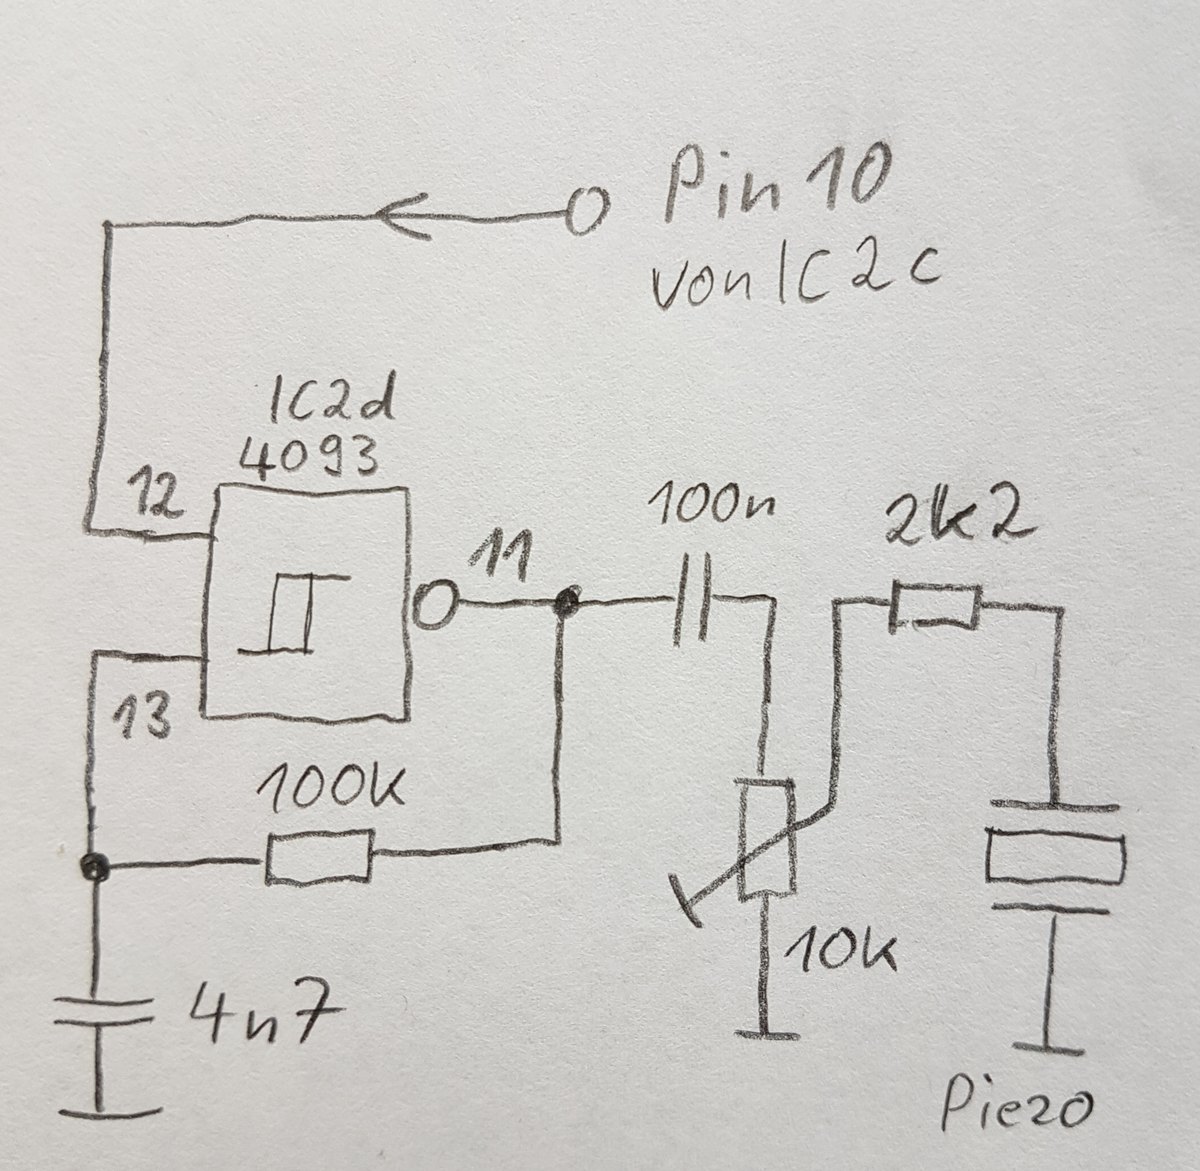 Pin 10
von IC2c
IC2d
4093
12
11
13
100n
2k2
100k
10k
4n7
Piezo